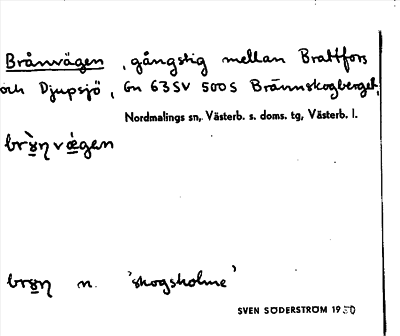 Brånvägen, gångstig mellan Brattfors
och Djupsjö, Gn 63SV 500S Brännskogberget,
Nordmalings sn, Västerb. s. doms. tg, Västerb. l.
skogsholme'
SVEN SÖDERSTRÖM 1950